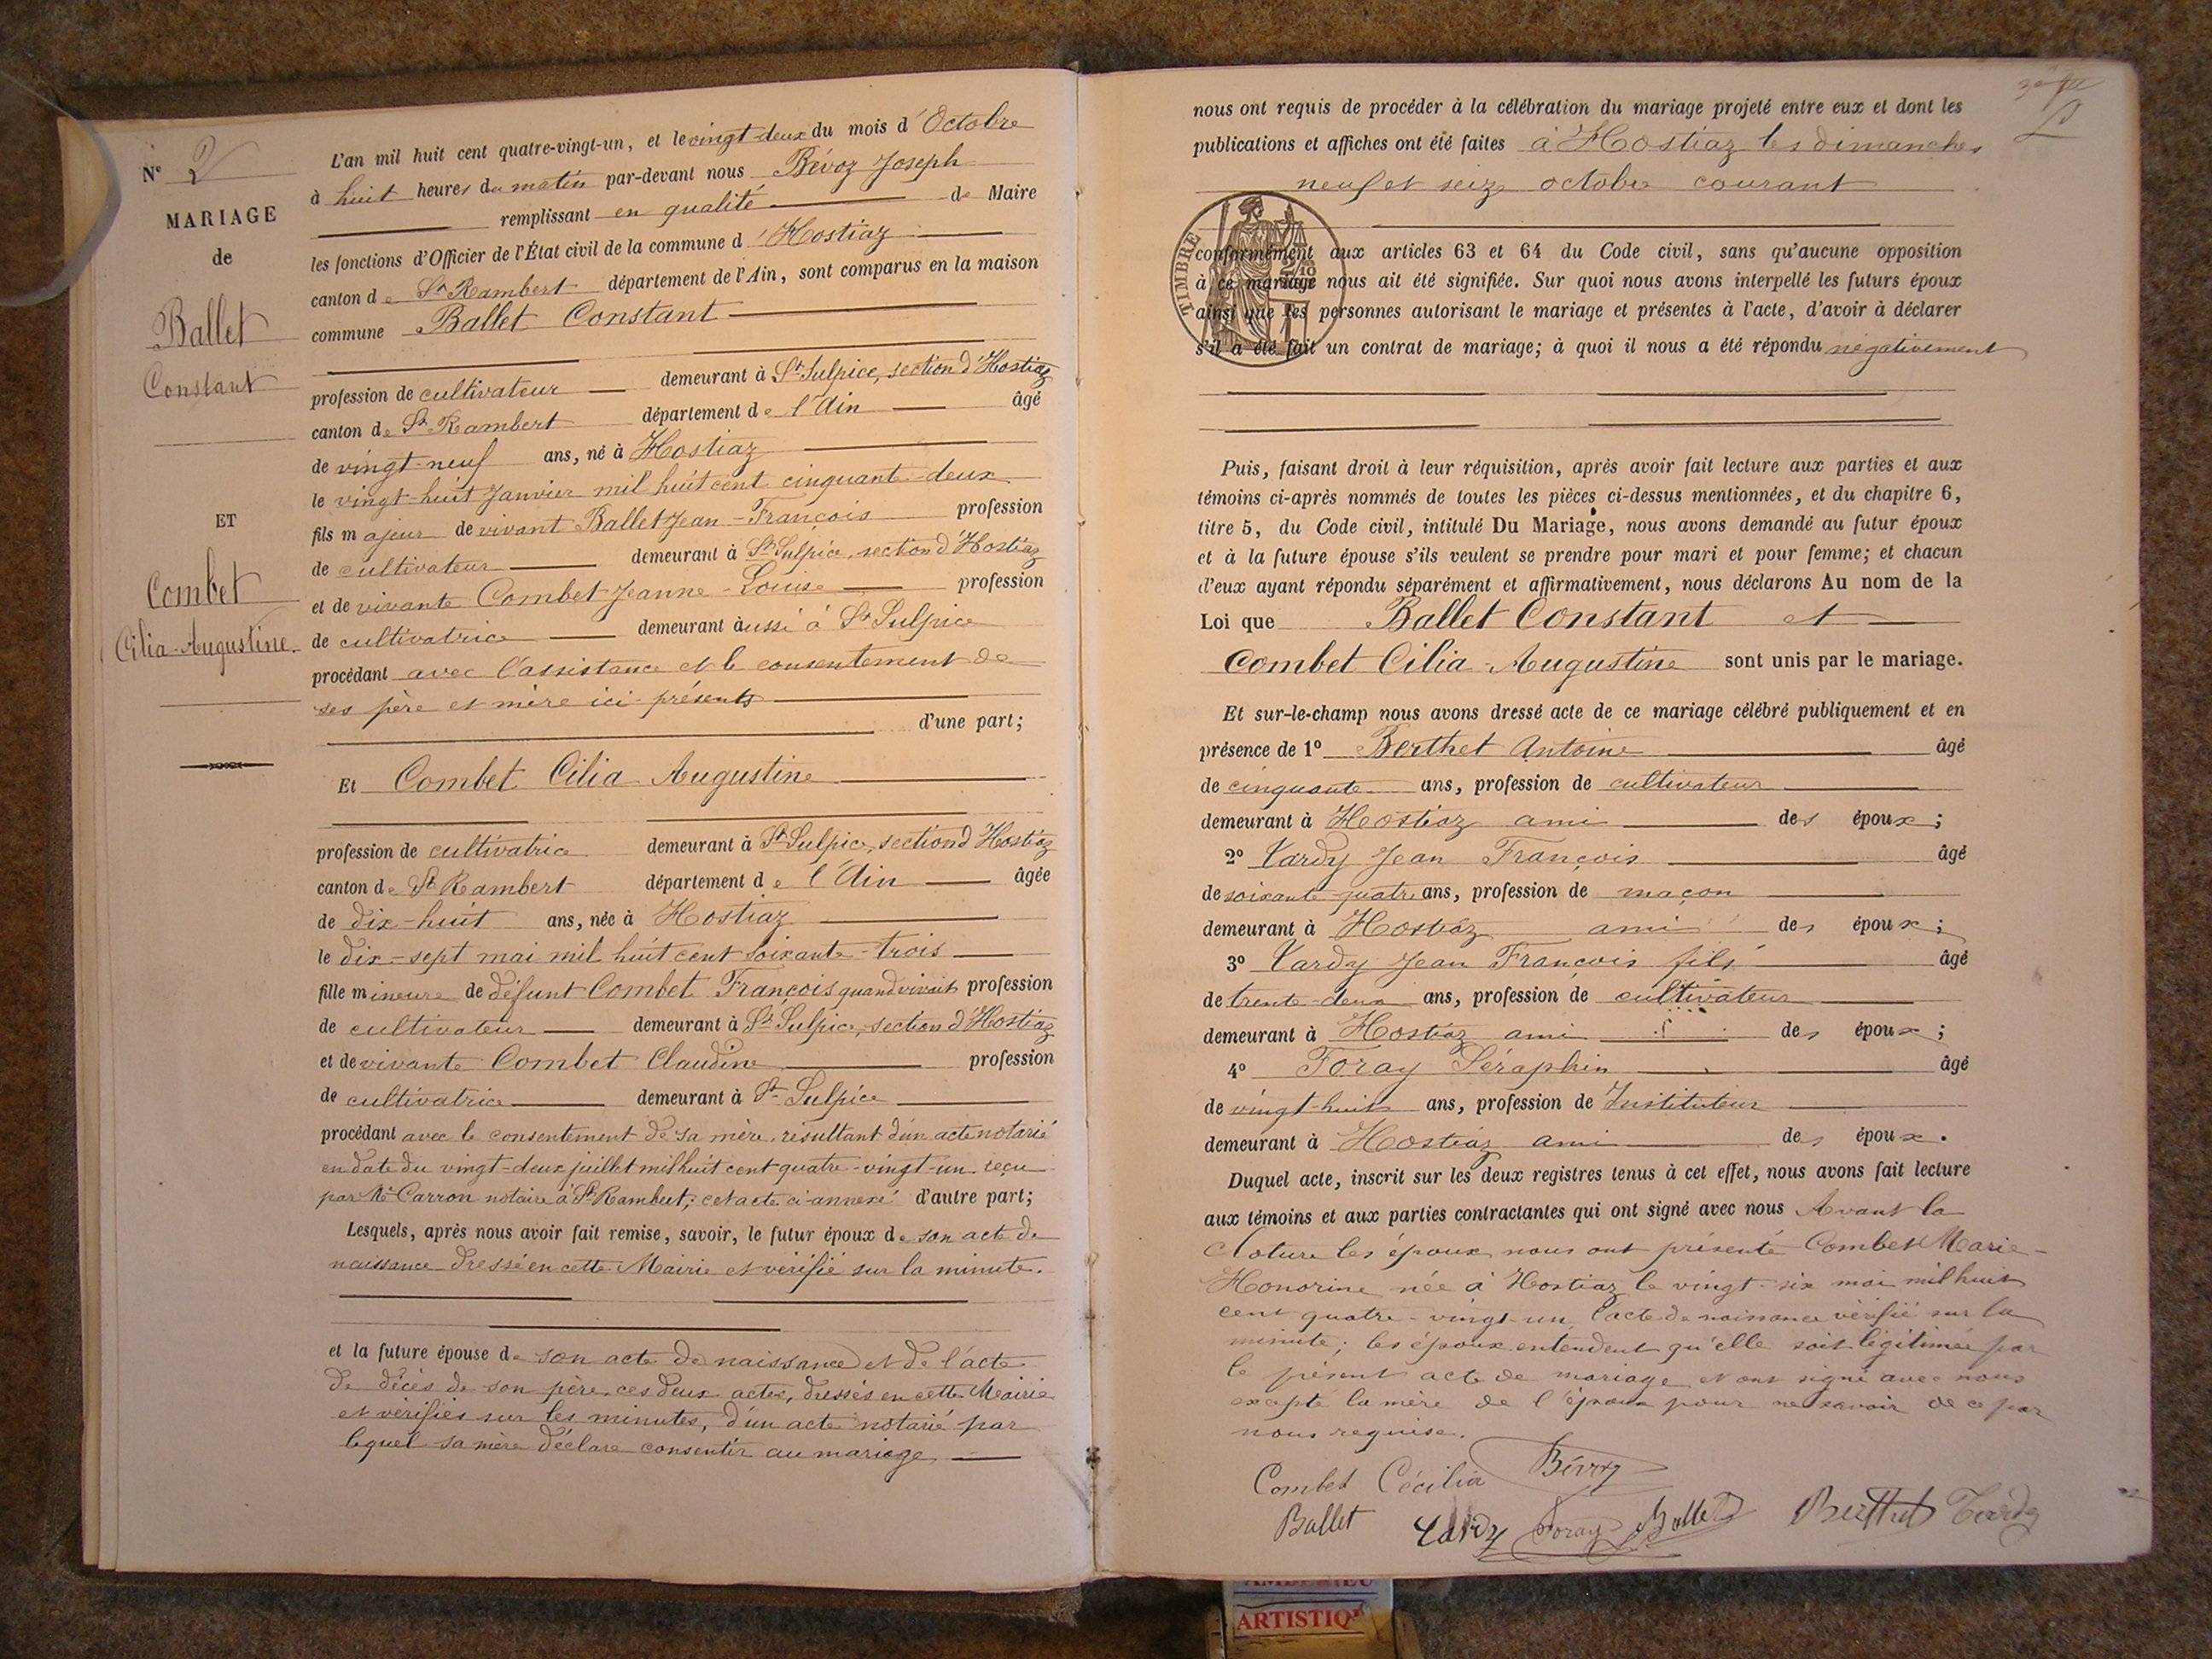 N° 2
MARIAGE
de
Ballet
Constant
ET
Combet
Cilia-Augustine.
L'an mil huit cent quatre-vingt-un, et le vingt-deux du mois d'Octobre
à huit heures du matin par-devant nous Bévoz Joseph
remplissant en qualité de Maire
les fonctions d'Officier de l'État civil de la commune d'Hostiaz
canton de St Rambert département de l'Ain, sont comparus en la maison
commune Ballet Constant
profession de cultivateur demeurant à St Sulpice, section d'Hostiaz
canton de St Rambert département de l'Ain âgé
de vingt-neuf ans, né à Hostiaz
le vingt-huit Janvier mil huit cent cinquante-deux
fils majeur de vivant Ballet Jean-François profession
de cultivateur demeurant à St Sulpice, section d'Hostiaz
et de vivante Combet Jeanne-Louise profession
de cultivatrice demeurant aussi à St Sulpice
procédant avec l'assistance et le consentement de
ses père et mère ici présents
d'une part;
Et Combet Cilia Augustine
profession de cultivatrice demeurant à St Sulpice, section d'Hostiaz
canton de St Rambert département de l'Ain âgée
de dix-huit ans, née à Hostiaz
le dix-sept mai mil huit cent soixante-trois
fille mineure de défunt Combet François quand vivait profession
de cultivateur demeurant à St Sulpice, section d'Hostiaz
et de vivante Combet Claudine profession
de cultivatrice demeurant à St Sulpice
procédant avec le consentement de sa mère, résultant d'un acte notarié
en date du vingt-deux juillet mil huit cent quatre-vingt-un reçu
par Me Carron notaire à St Rambert; cet acte ci-annexé d'autre part;
Lesquels, après nous avoir fait remise, savoir, le futur époux de son acte de
naissance dressé en cette Mairie et vérifié sur la minute.
et la future épouse de son acte de naissance et de l'acte
de décès de son père, ces deux actes, dressés en cette Mairie
et vérifiés sur les minutes, d'un acte notarié par
lequel sa mère déclare consentir au mariage
nous ont requis de procéder à la célébration du mariage projeté entre eux et dont les
publications et affiches ont été faites à Hostiaz les dimanches
neuf et seize octobre courant
TIMBRE
2/10
conformément aux articles 63 et 64 du Code civil, sans qu'aucune opposition
à ce mariage nous ait été signifiée. Sur quoi nous avons interpellé les futurs époux
ainsi que les personnes autorisant le mariage et présentes à l'acte, d'avoir à déclarer
s'il a été fait un contrat de mariage; à quoi il nous a été répondu négativement
Puis, faisant droit à leur réquisition, après avoir fait lecture aux parties et aux
témoins ci-après nommés de toutes les pièces ci-dessus mentionnées, et du chapitre 6,
titre 5, du Code civil, intitulé Du Mariage, nous avons demandé au futur époux
et à la future épouse s'ils veulent se prendre pour mari et pour femme; et chacun
d'eux ayant répondu séparément et affirmativement, nous déclarons Au nom de la
Loi que Ballet Constant et
Combet Cilia Augustine sont unis par le mariage.
Et sur-le-champ nous avons dressé acte de ce mariage célébré publiquement et en
présence de 1° Berthet Antoine âgé
de cinquante ans, profession de cultivateur
demeurant à Hostiaz ami des époux;
2° Tardy Jean François âgé
de soixante-quatre ans, profession de maçon
demeurant à Hostiaz ami des époux;
3° Tardy Jean François fils âgé
de trente-deux ans, profession de cultivateur
demeurant à Hostiaz ami des époux;
4° Foray Séraphin âgé
de vingt-huit ans, profession de Instituteur
demeurant à Hostiaz ami des époux.
Duquel acte, inscrit sur les deux registres tenus à cet effet, nous avons fait lecture
aux témoins et aux parties contractantes qui ont signé avec nous Avant la
cloture les époux nous ont présenté Combet Marie-
Honorine née à Hostiaz le vingt-six mai mil huit
cent quatre-vingt-un, l'acte de naissance vérifié sur la
minute; les époux entendent qu'elle soit légitimée par
le présent acte de mariage et ont signé avec nous
excepté la mère de l'époux pour ne savoir de ce par
nous requise.
Combet Cécilia Bévoz
Ballet Tardy Foray Ballet Berthet Tardy
ARTISTIQ